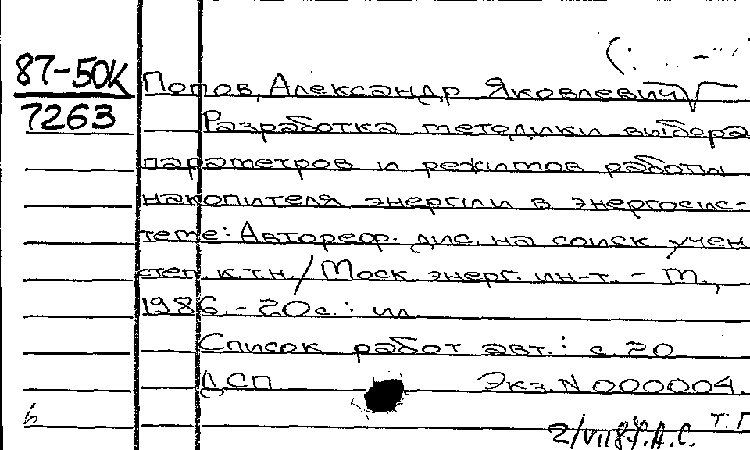 87-50К
7263
Попов, Александр Яковлевич
Разработка методики выбора
параметров и режимов работы
накопителя энергии в энергосис-
теме: Автореф. дис. на соиск учен
степ к.т.н./ Моск энерг. ин-т. - М.,
1986. - 20с.: ил
Список работ авт.: с. 20
ДСП Экз. N 000004.